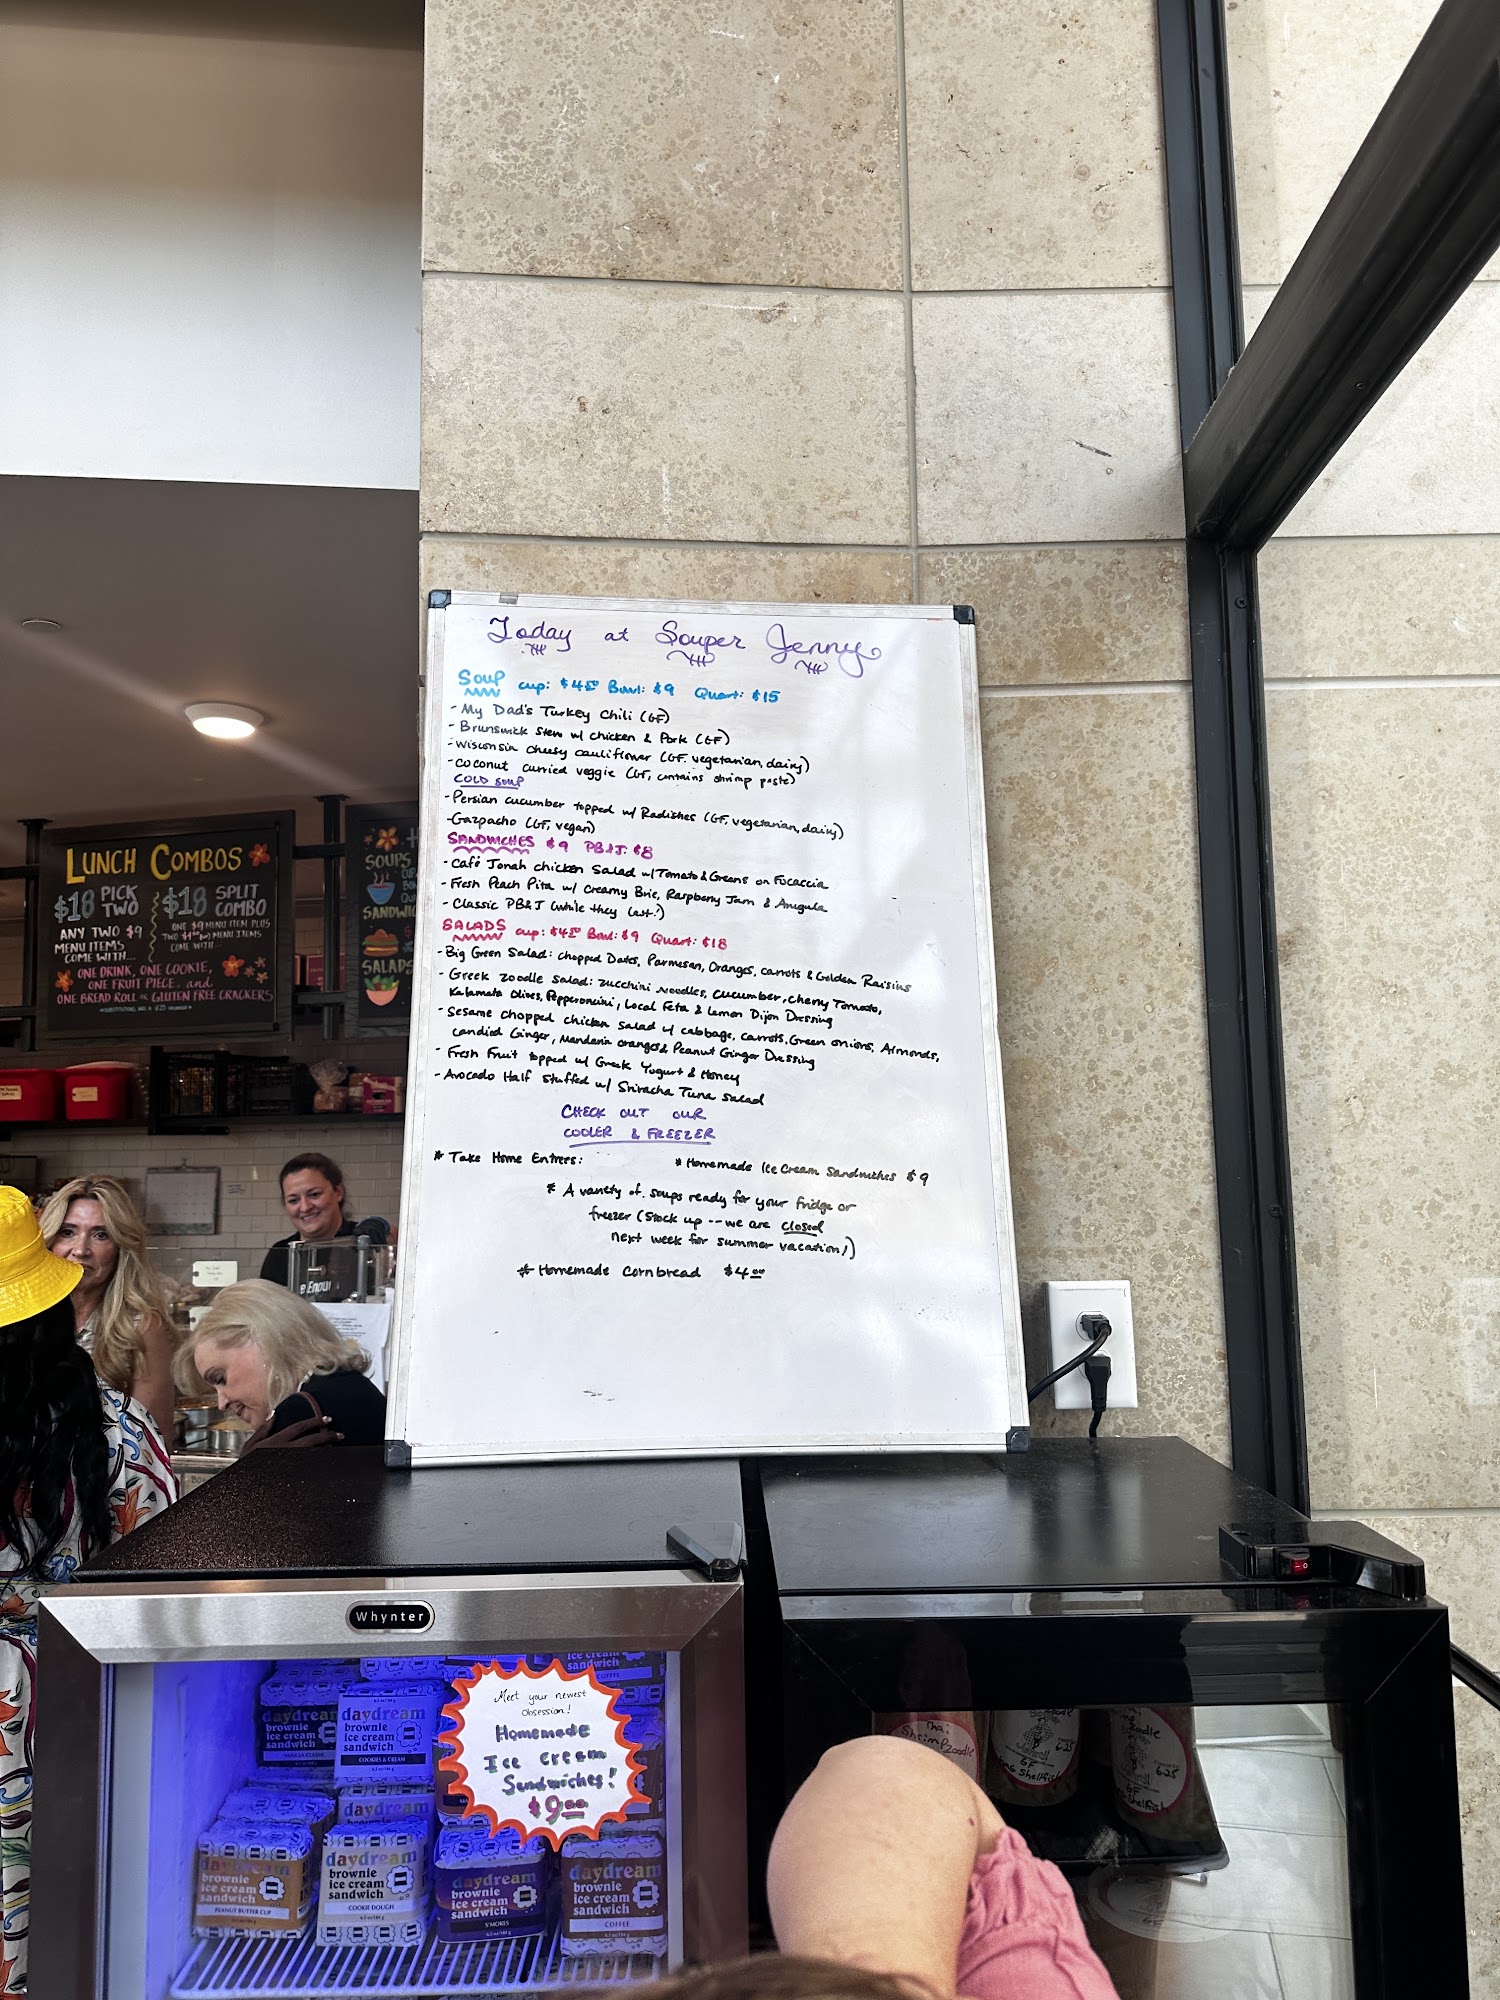 Today at Souper Jenny
Soup cup: $4.50 Bowl: $9 Quart: $15
- My Dad's Turkey Chili (GF)
- Brunswick Stew w/ chicken & Pork (GF)
- Wisconsin cheesy cauliflower (GF, vegetarian, dairy)
- coconut curried veggie (GF, contains shrimp paste)
COLD SOUP
- Persian cucumber topped w/ Radishes (GF, vegetarian, dairy)
- Gazpacho (GF, vegan)
SANDWICHES $9 PB&J: $8
- Café Jonah chicken Salad w/ Tomato & Greens on Focaccia
- Fresh Peach Pita w/ Creamy Brie, Raspberry Jam & Arugula
- Classic PB&J (while they last!)
SALADS cup: $4.50 Bowl: $9 Quart: $18
- Big Green Salad: chopped Dates, Parmesan, Oranges, carrots & Golden Raisins
- Greek Zoodle Salad: zucchini noodles, cucumber, cherry Tomato,
Kalamata Olives, Pepperoncini, Local Feta & Lemon Dijon Dressing
- Sesame chopped chicken salad w/ cabbage, carrots, Green onions, Almonds,
candied Ginger, Mandarin oranges & Peanut Ginger Dressing
- Fresh Fruit topped w/ Greek Yogurt & Honey
- Avocado Half Stuffed w/ Sriracha Tuna Salad
CHECK OUT OUR
COOLER & FREEZER
* Take Home Entrees:
* Homemade Ice Cream Sandwiches $9
* A variety of soups ready for your fridge or
freezer (Stock up -- we are closed
next week for summer vacation!)
* Homemade Cornbread $4.00
LUNCH COMBOS
$18 PICK TWO
ANY TWO $9
MENU ITEMS
COME WITH...
$18 SPLIT COMBO
ONE $9 MENU ITEM PLUS
TWO MENU ITEMS
COME WITH...
ONE DRINK, ONE COOKIE,
ONE FRUIT PIECE, and
ONE BREAD ROLL or GLUTEN FREE CRACKERS
SOUPS
SANDWIC
SALADS
Whynter
Meet your newest
obsession!
Homemade
Ice Cream
Sandwiches!
$9.00
ice cream
sandwich
COFFEE
daydream
brownie
ice cream
sandwich
VANILLA CLASSIC
daydream
brownie
ice cream
sandwich
COOKIES & CREAM
daydream
daydream
brownie
ice cream
sandwich
PEANUT BUTTER CUP
daydream
brownie
ice cream
sandwich
COOKIE DOUGH
daydream
brownie
ice cream
sandwich
S'MORES
daydream
brownie
ice cream
sandwich
COFFEE
Thai
Shrimp Zoodle
GF
Shellfish
Zoodle
6.25
GF
Shellfish